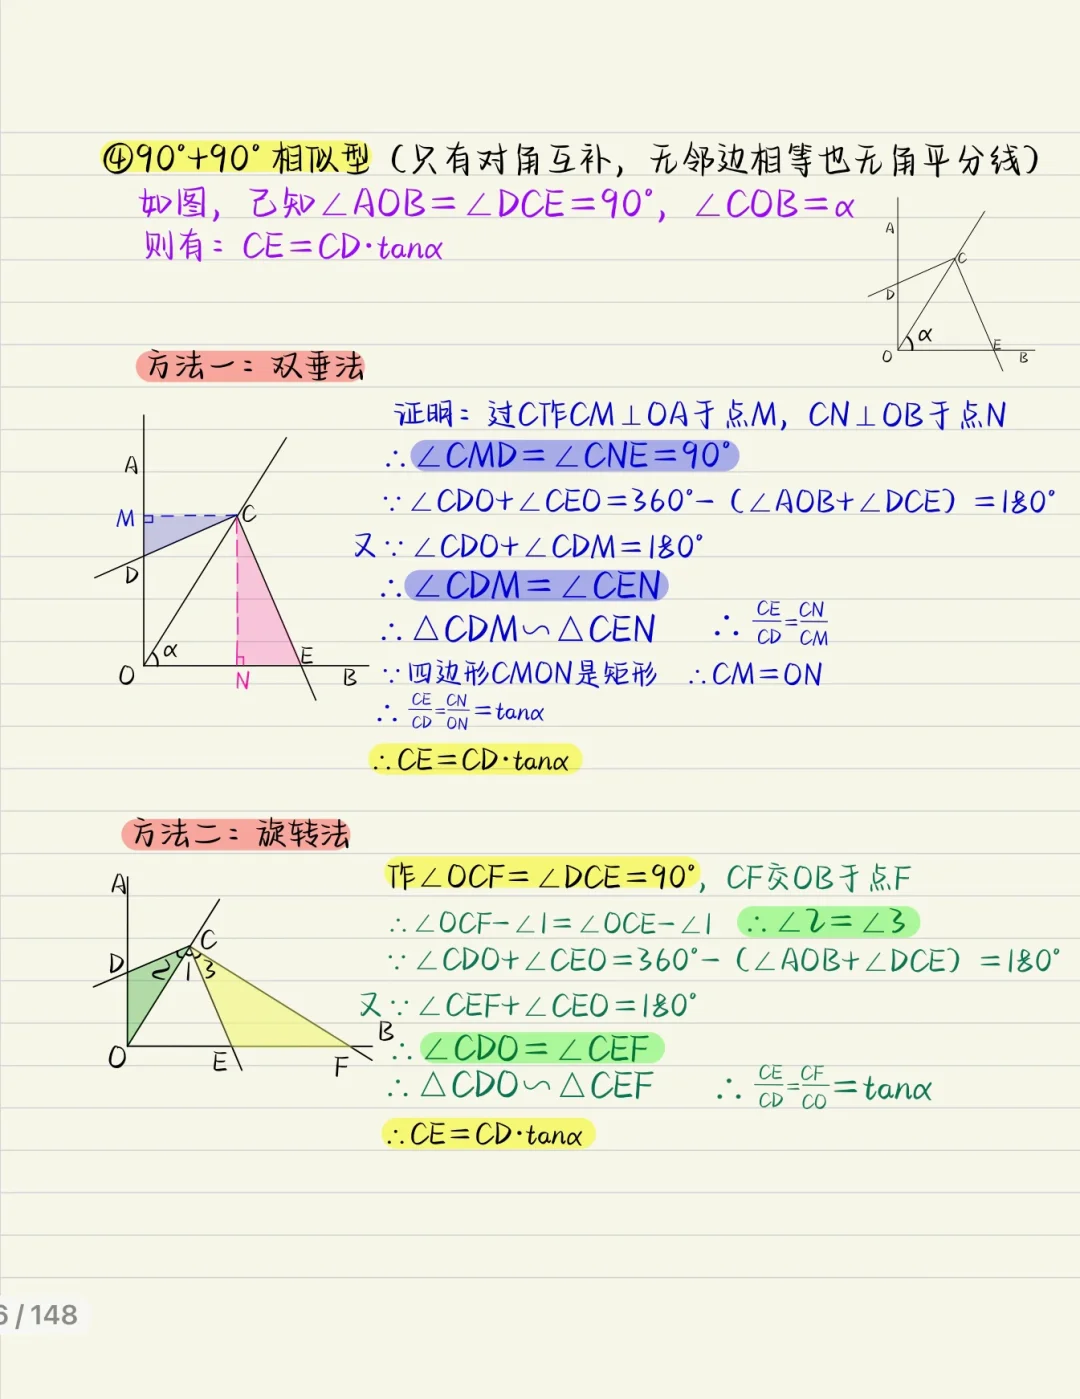 ④90°+90°相似型（只有对角互补，无邻边相等也无角平分线）
如图，已知∠AOB=∠DCE=90°，∠COB=α
则有：CE=CD·tanα
A
C
D
α
O
E
B
方法一：双垂法
证明：过C作CM⊥OA于点M，CN⊥OB于点N
∴∠CMD=∠CNE=90°
∵∠CDO+∠CEO=360°-（∠AOB+∠DCE）=180°
又∵∠CDO+∠CDM=180°
∴∠CDM=∠CEN
∴△CDM∽△CEN ∴CE/CD=CN/CM
∵四边形CMON是矩形 ∴CM=ON
∴CE/CD=CN/ON=tanα
∴CE=CD·tanα
A
M
C
D
α
O
N
E
B
方法二：旋转法
作∠OCF=∠DCE=90°，CF交OB于点F
∴∠OCF-∠1=∠OCE-∠1 ∴∠2=∠3
∵∠CDO+∠CEO=360°-（∠AOB+∠DCE）=180°
又∵∠CEF+∠CEO=180°
∴∠CDO=∠CEF
∴△CDO∽△CEF ∴CE/CD=CF/CO=tanα
∴CE=CD·tanα
A
C
D
2
1
3
B
O
E
F
6/148